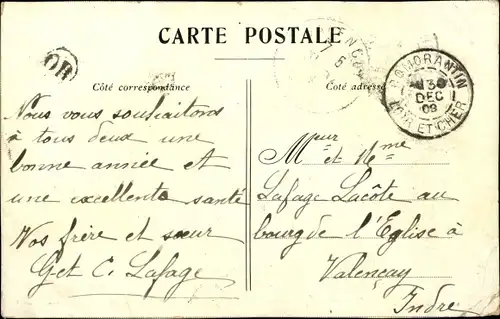 CARTE POSTALE
OR
Côté correspondance
Côté adresse
ROMORANTIN
13
DEC
08
LOIR-ET-CHER
Nous vous souhaitons
à tous deux une
bonne année et
une excellente santé
Vos frère et sœur
G et C. Lafage
Meur et Mme
Lafage Lacôte au
bourg de l'Eglise à
Valençay
Indre